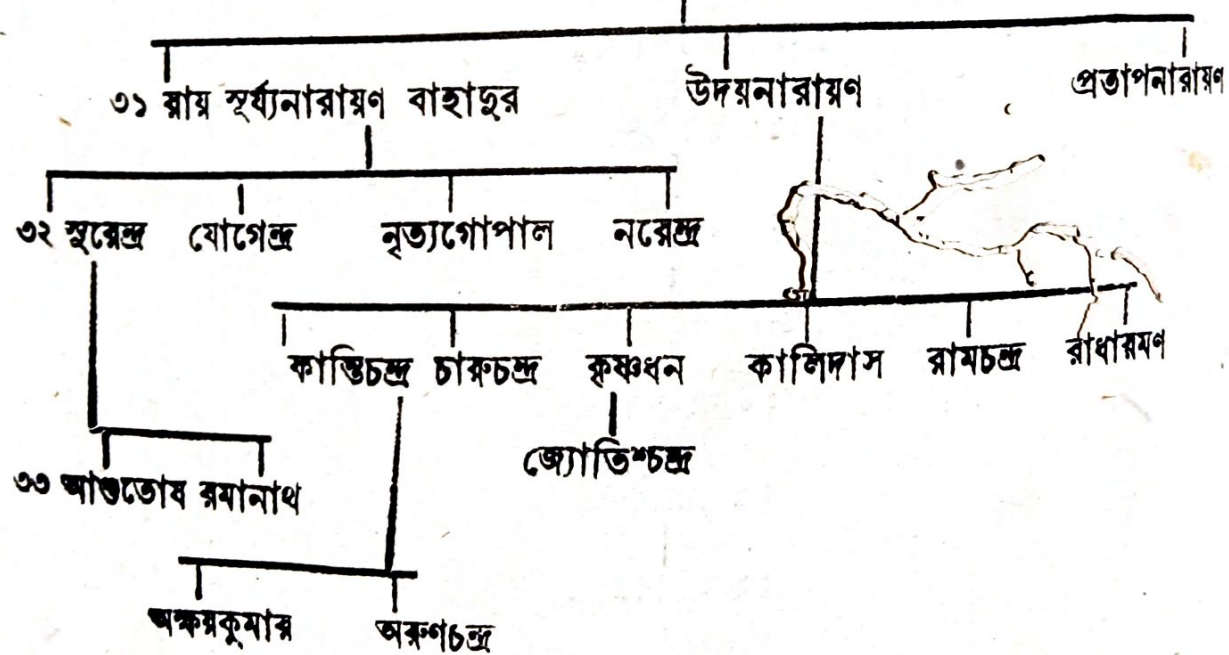 ৩১ রায় সূর্য্যনারায়ণ বাহাদুর উদয়নারায়ণ প্রতাপনারায়ণ
৩২ সুরেন্দ্র যোগেন্দ্র নৃত্যগোপাল নরেন্দ্র
কান্তিচন্দ্র চারুচন্দ্র কৃষ্ণধন কালিদাস রামচন্দ্র রাধারমণ
জ্যোতিশ্চন্দ্র
৩৩ আশুতোষ রমানাথ
অক্ষয়কুমার অরুণচন্দ্র